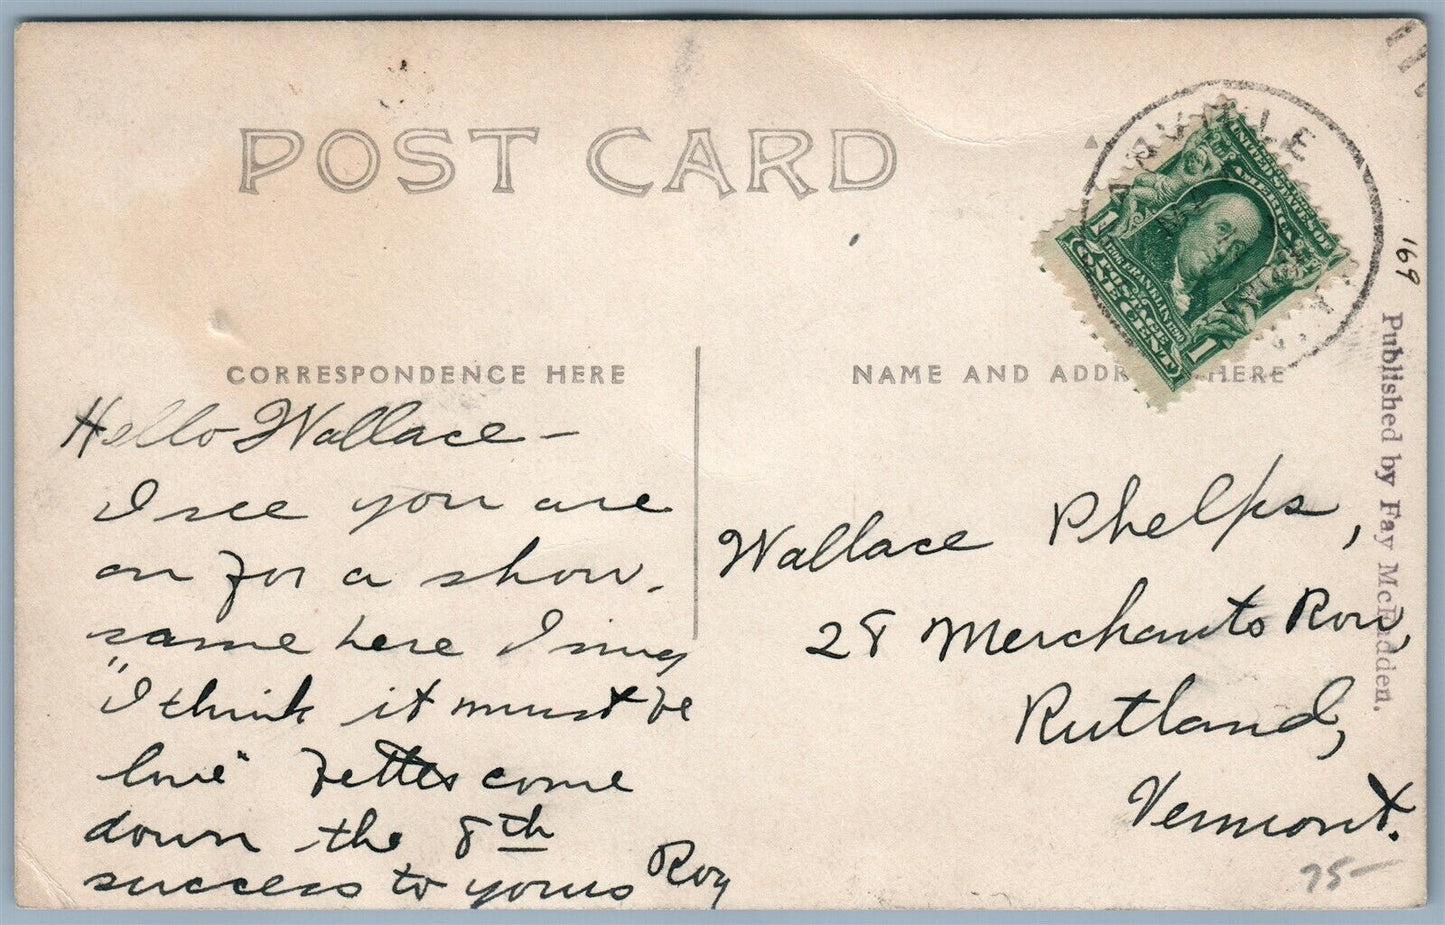 POST CARD
CORRESPONDENCE HERE
NAME AND ADDR HERE
UNITED STATES OF AMERICA
1706 FRANKLIN 1790
POSTAGE
1 ONE CENT 1
N.Y.
'169
Published by Fay McFadden.
Hello Wallace –
I see you are
on for a show.
same here I sing
"I think it must be
love" better come
down the 8th
success to yours Roy
Wallace Phelps,
28 Merchants Row,
Rutland,
Vermont.
75–